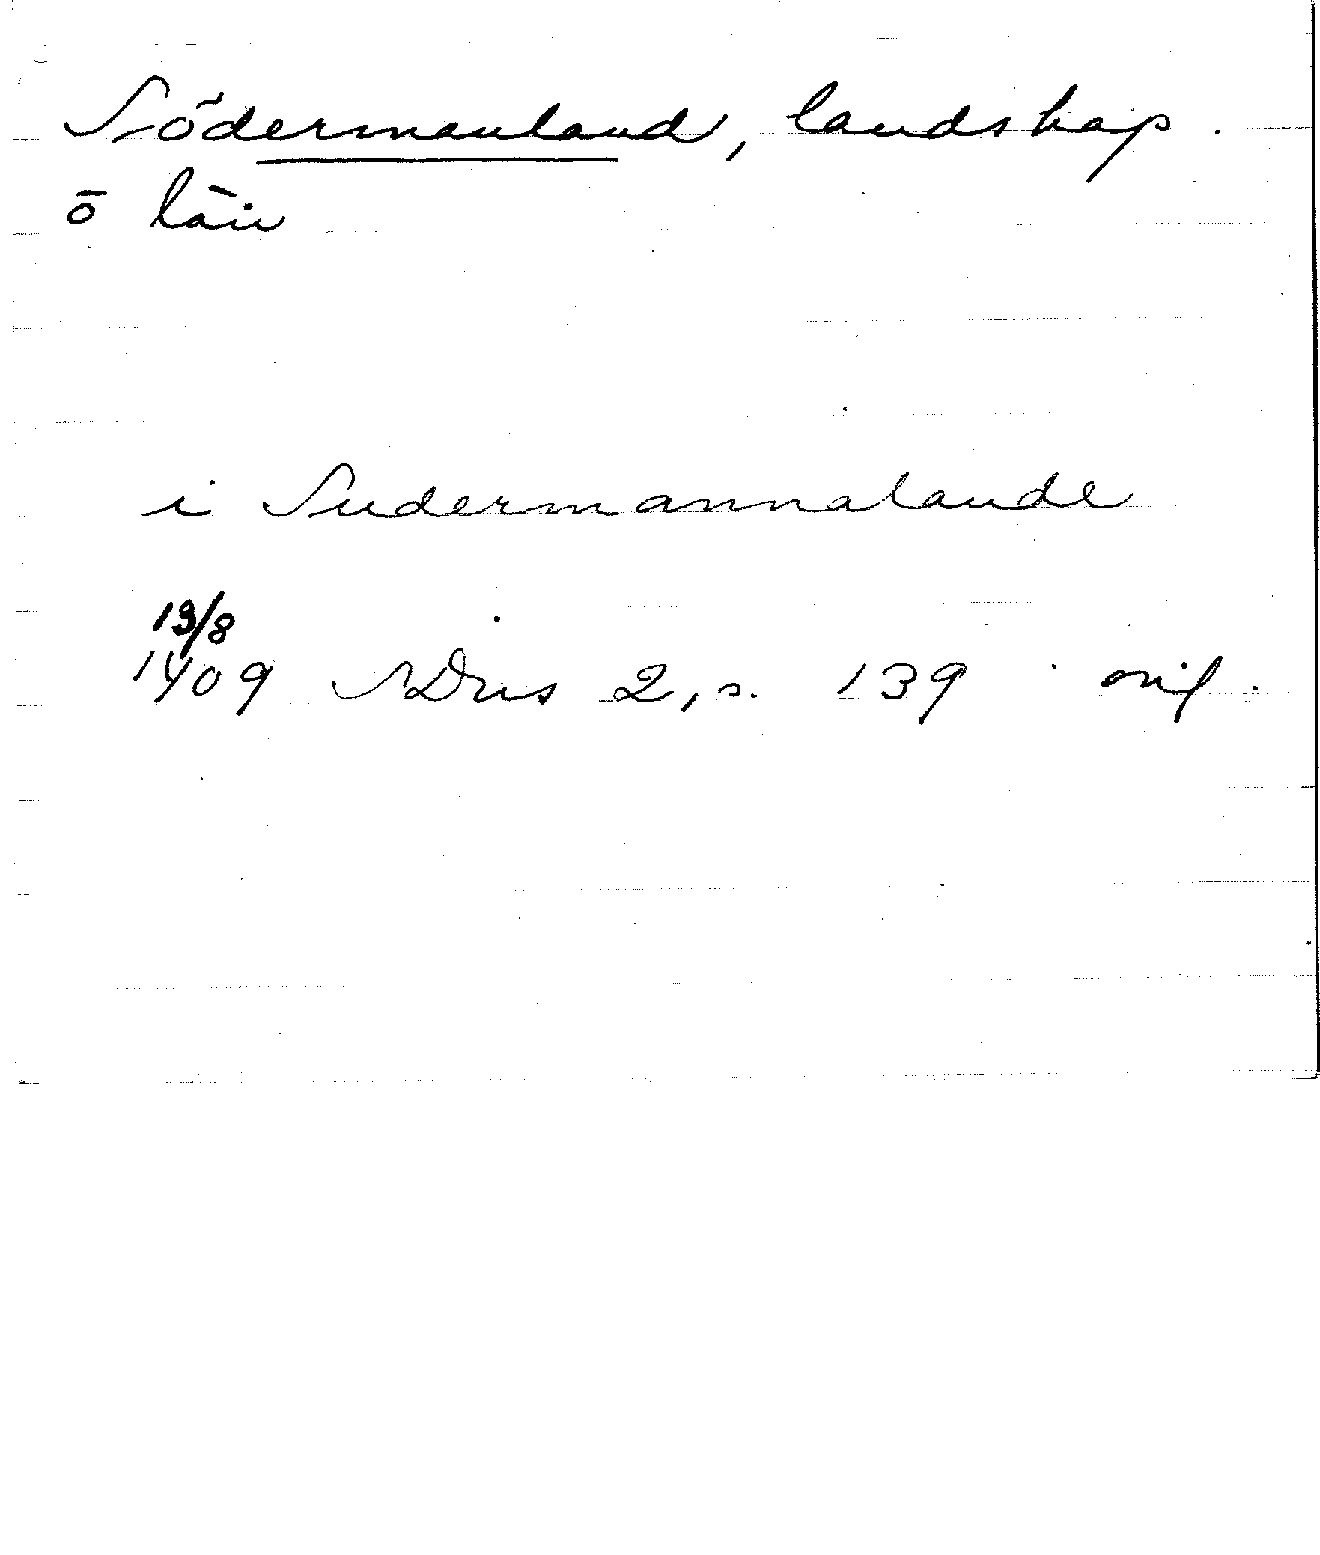 Södermanland, landskap.
ō län
i Sudermannalande
19/8
1409 SDns 2, s. 139 orig.